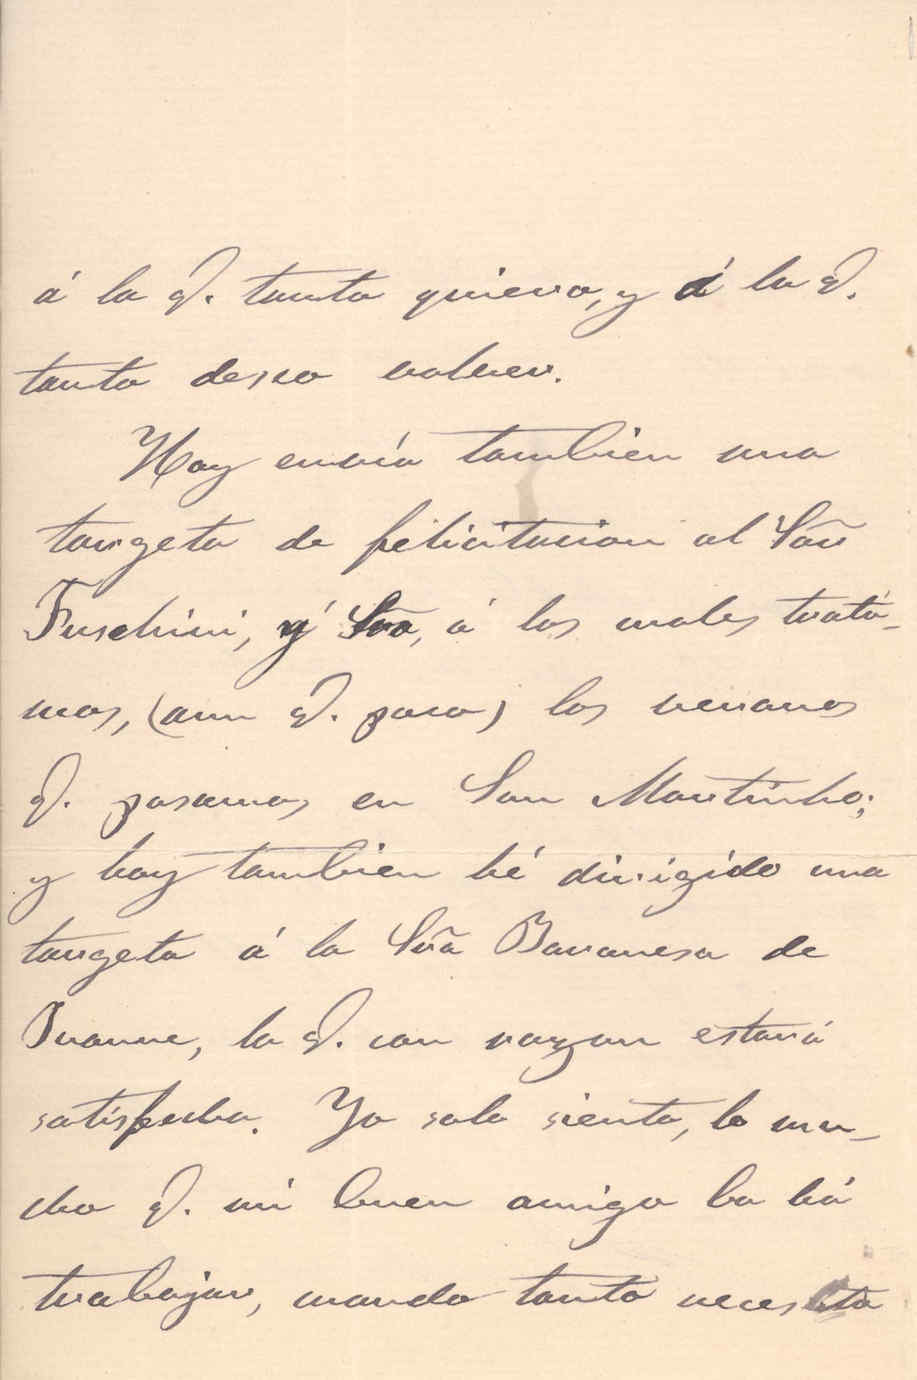 á la q. tanto quiero, y á la q.
tanto deseo volver.
Hoy envío tambien una
targeta de felicitacion al Sōr
Fuschini, y Sra, á los cuales tratá-
mos, (aun q. poco) los veranos
q. pasamos en San Martinho;
y hoy tambien hé dirigido una
targeta á la Srã Baronesa de
la q. con razon estará
satisfecha. Yo solo siento, lo mu-
cho q. mi buen amigo ha
trabajar, cuando tanto necesita